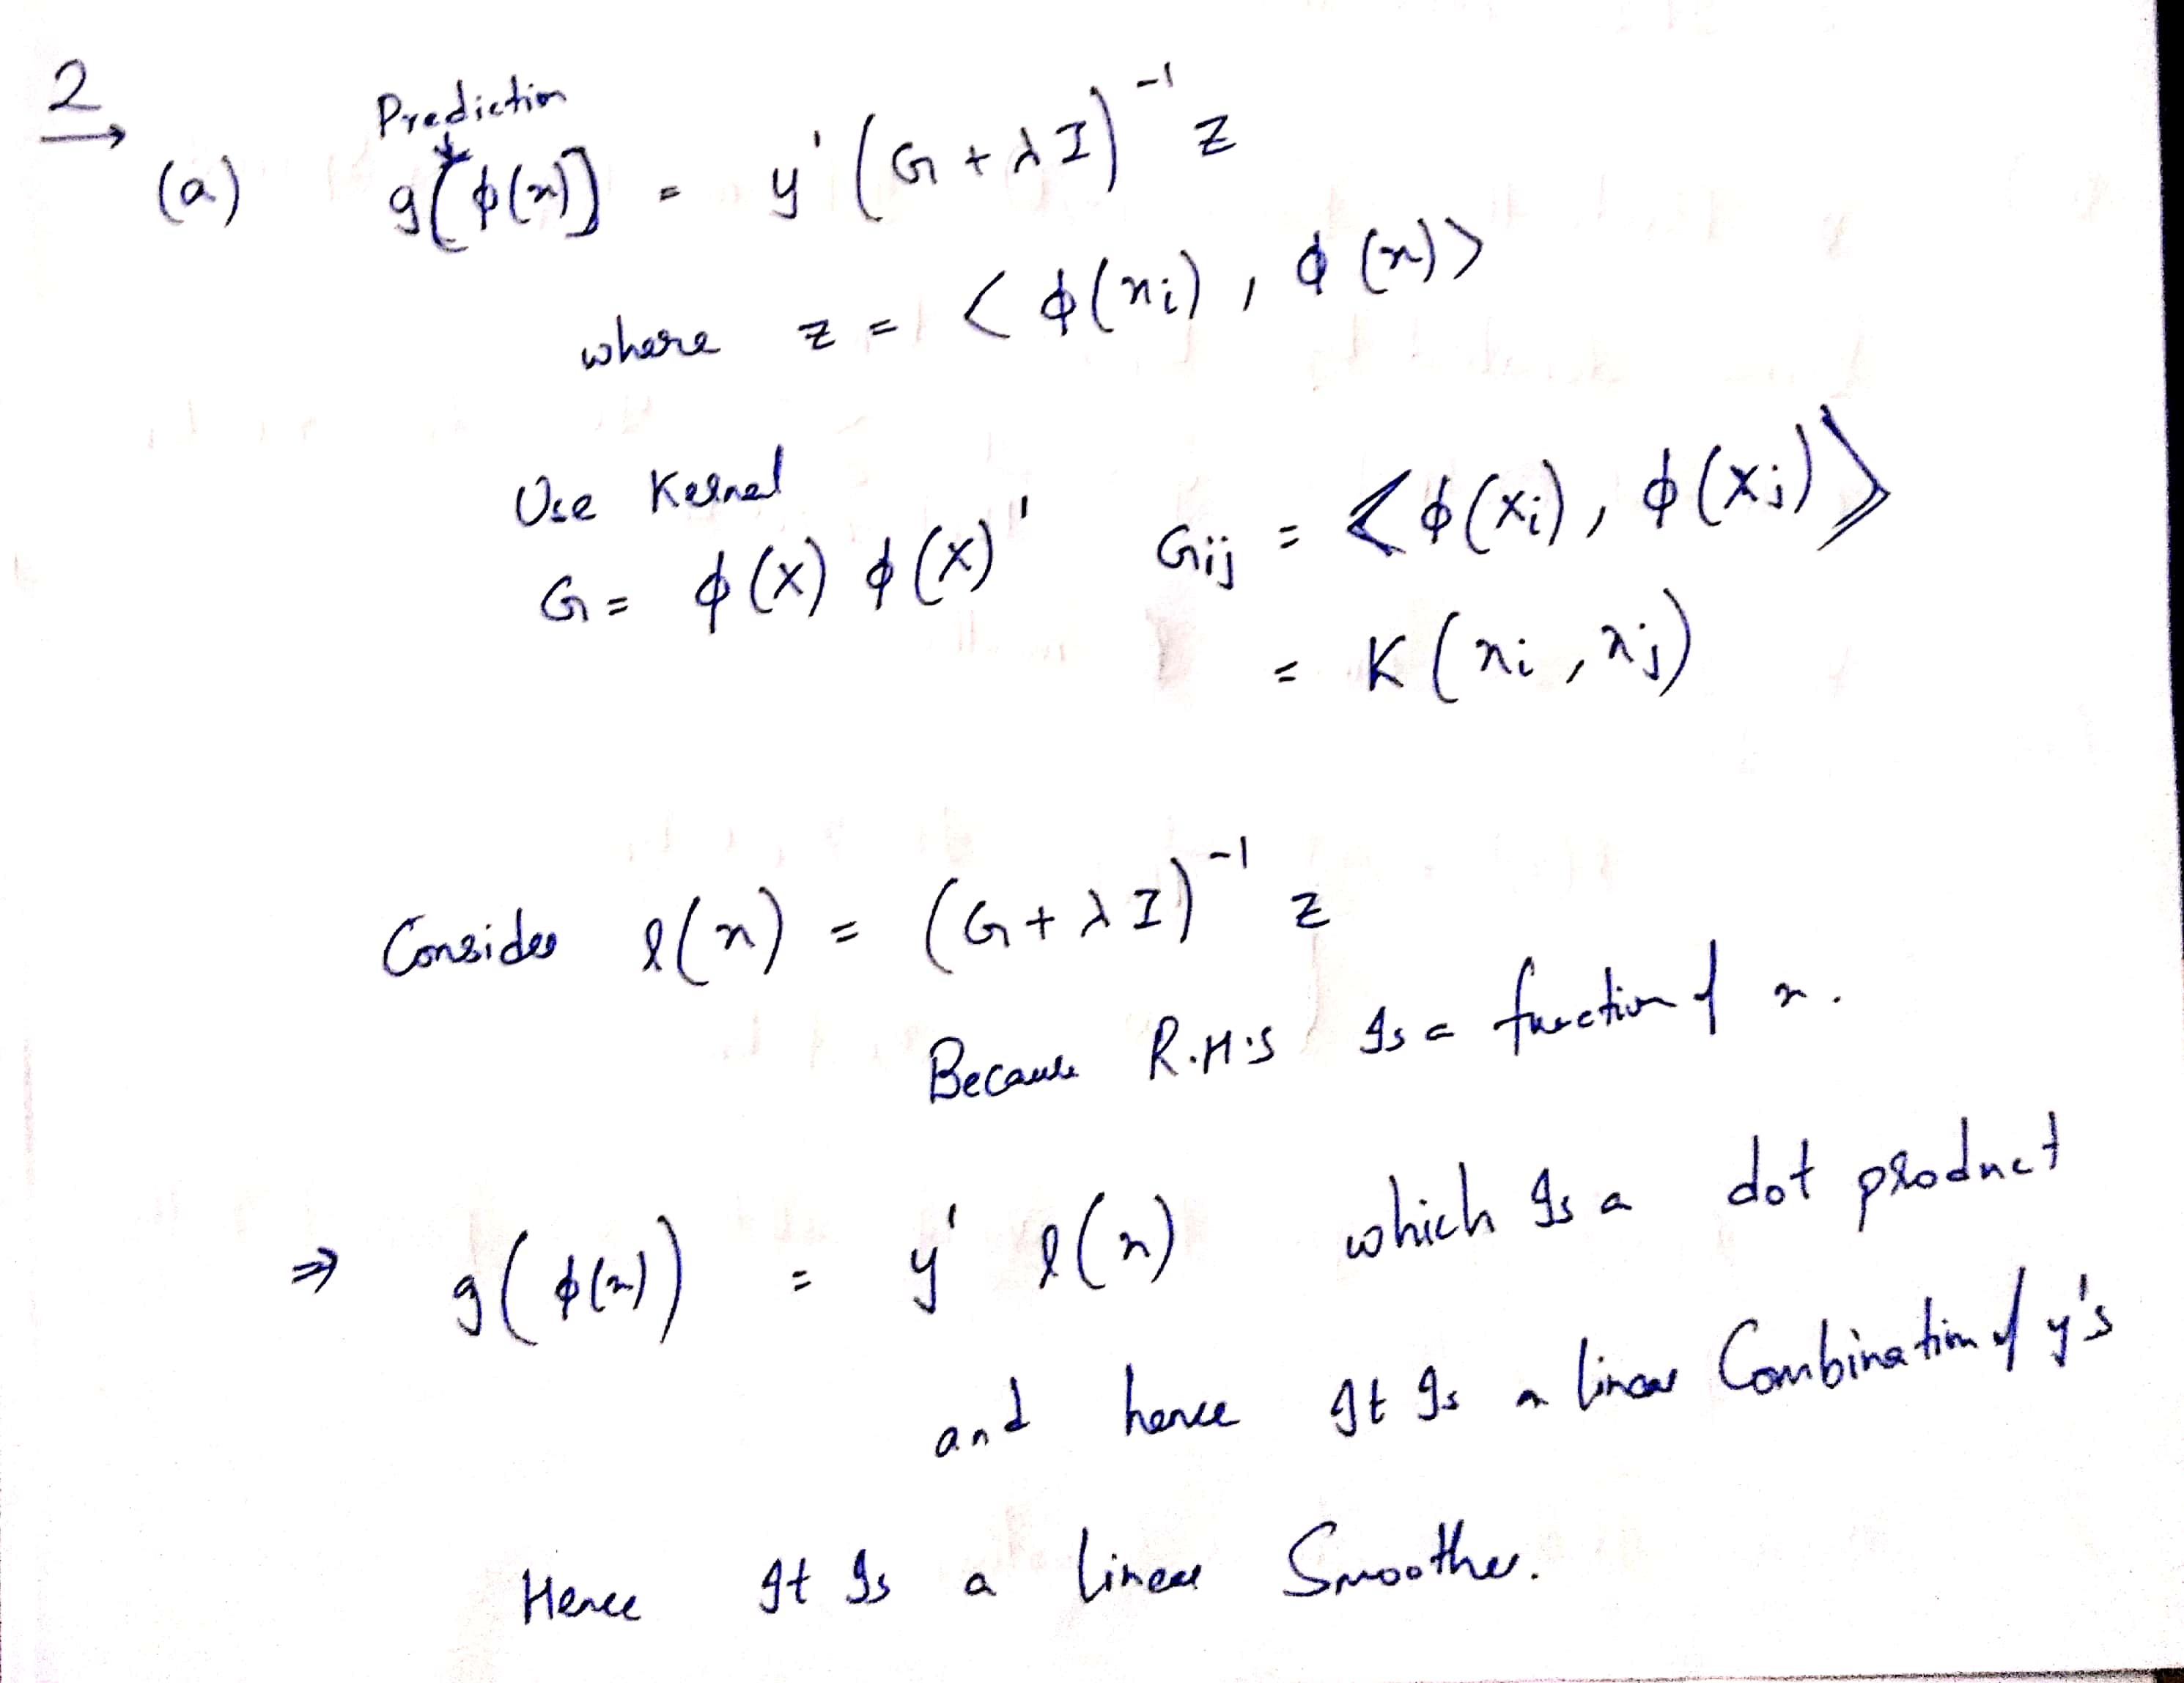 2
Prediction
(a) g[φ(x)] = y' (G + λI)⁻¹ z
where z = < φ(xi) , φ(x)>
Use Kernel
G = φ(X) φ(X)' Gij = <φ(xi), φ(xj)>
= K(xi , xj)
Consider l(x) = (G + λI)⁻¹ z
Because R.H.S Is a function of x.
⇒ g(φ(x)) = y' l(x) which Is a dot product
and hence It Is a linear Combination of y's
Hence It Is a linear Smoother.